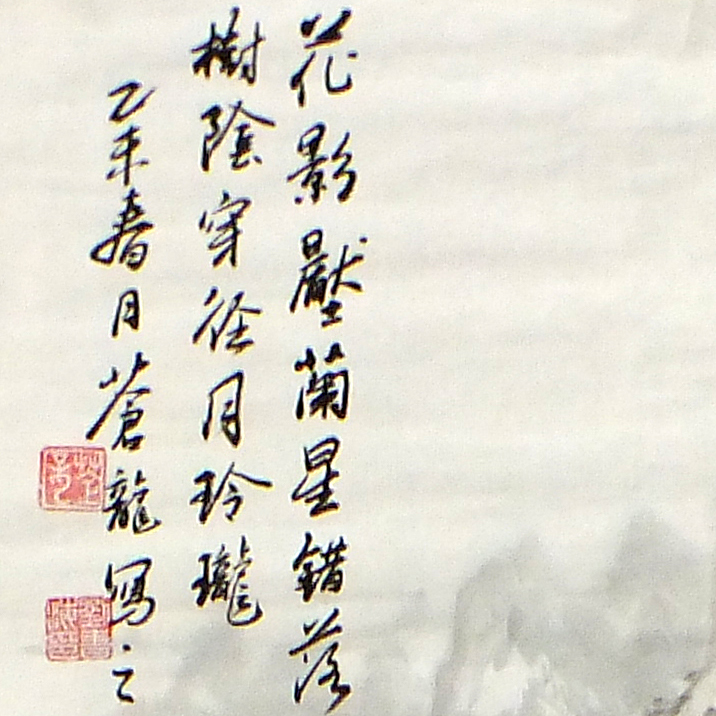 花影壓蘭星錯落
樹陰穿徑月玲瓏
乙未春月蒼龍寫之